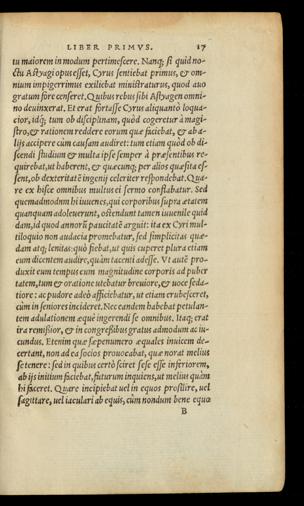 LIBER PRIMVS. 17
tu maiorem in modum pertimescere. Nanq; si quid no-
ctu Astyagi opus esset, Cyrus sentiebat primus, & om-
nium impigerrimus exiliebat ministraturus, quod auo
gratum fore censeret. Quibus rebus sibi Astyagen omni-
no deuinxerat. Et erat fortasse Cyrus aliquantò loqua-
cior, idq; tum ob disciplinam, quòd cogeretur à magi-
stro, & rationem reddere eorum quæ faciebat, & ab a-
lijs accipere cùm causam audiret: tum etiam quòd ob di-
scendi studium & multa ipse semper à præsentibus re-
quirebat, ut haberent, & quæcunq; per alios quæsita es-
sent, ob dexteritatē ingenij celeriter respondebat. Qua-
re ex hisce omnibus multus ei sermo constabatur. Sed
quemadmodum hi iuuenes, qui corporibus supra ætatem
quanquam adoleuerunt, ostendunt tamen iuuenile quid
dam, id quod annorū paucitatē arguit: ita ex Cyri mul-
tiloquio non audacia promebatur, sed simplicitas quæ-
dam atq; lenitas: quò fiebat, ut quis cuperet plura etiam
eum dicentem audire, quàm tacenti adesse. Vt autē pro-
duxit eum tempus cum magnitudine corporis ad puber
tatem, tum & oratione utebatur breuiore, & uoce seda-
tiore: ac pudore adeò afficiebatur, ut etiam erubesceret,
cùm in seniores incideret. Nec eandem habebat petulan-
tem adulationem æquè ingerendi se omnibus. Itaq; erat
ita remissior, & in congressibus gratus admodum ac iu-
cundus. Etenim quæ sæpenumero æquales inuicem de-
certant, non ad ea socios prouocabat, quæ norat melius
se tenere: sed in quibus certò sciret sese esse inferiorem,
ab ijs initium faciebat, futurum inquiens, ut melius quàm
hi faceret. Quare incipiebat uel in equos prosilire, uel
sagittare, uel iaculari ab equis, cùm nondum bene equo
B